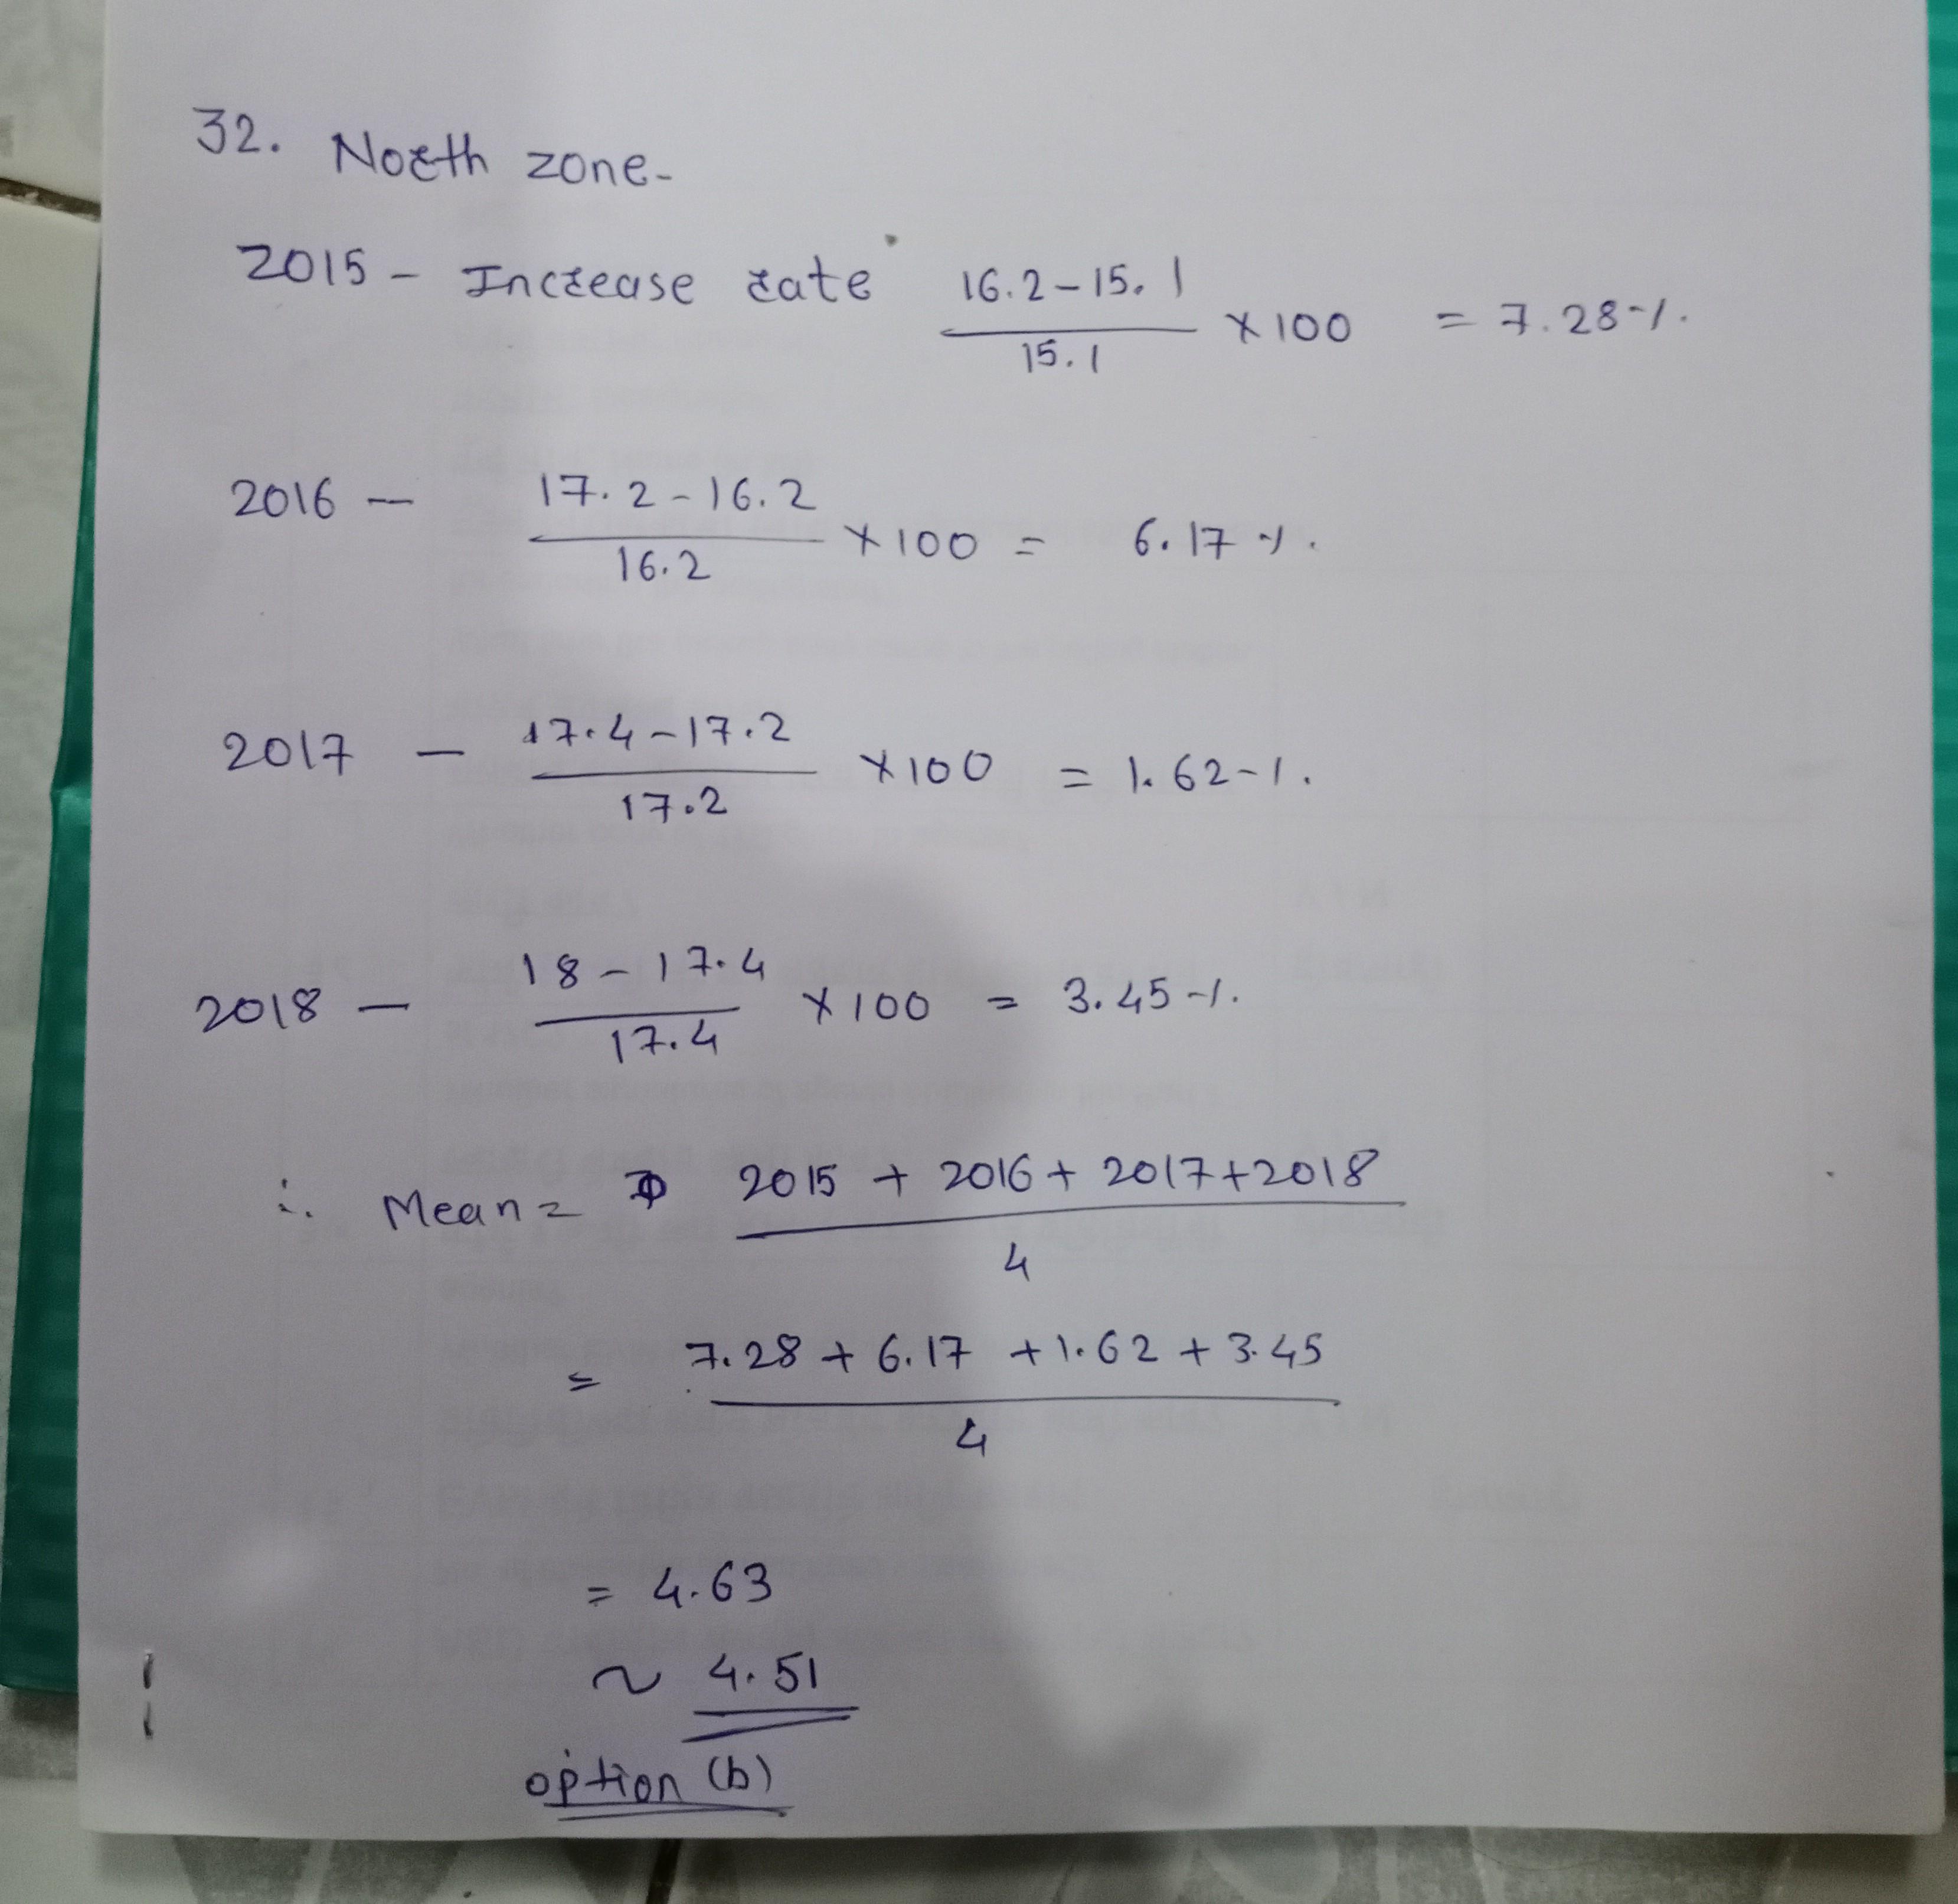 32. North zone-
2015 - Increase rate 16.2-15.1 / 15.1 × 100 = 7.28%.
2016 - 17.2-16.2 / 16.2 × 100 = 6.17%.
2017 - 17.4-17.2 / 17.2 × 100 = 1.62%.
2018 - 18-17.4 / 17.4 × 100 = 3.45%.
∴ Mean = 2015 + 2016 + 2017+2018 / 4
= 7.28 + 6.17 + 1.62 + 3.45 / 4
= 4.63
~ 4.51
option (b)